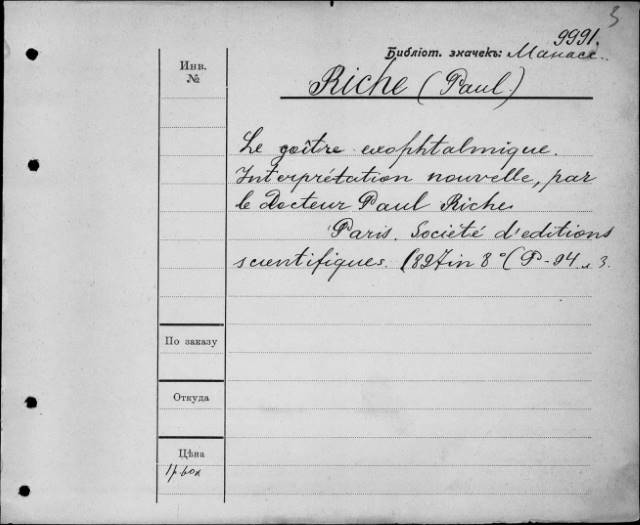 3
9991.
Библіот. значекъ: Манасс.
Инв.
№
Riche (Paul.)
Le goître exophtalmique.
Interprétation nouvelle, par
le docteur Paul Riche
Paris. Société d'editions
scientifiques. 1897 in 8° (P-94
По заказу
Откуда
Цѣна
1р 60к